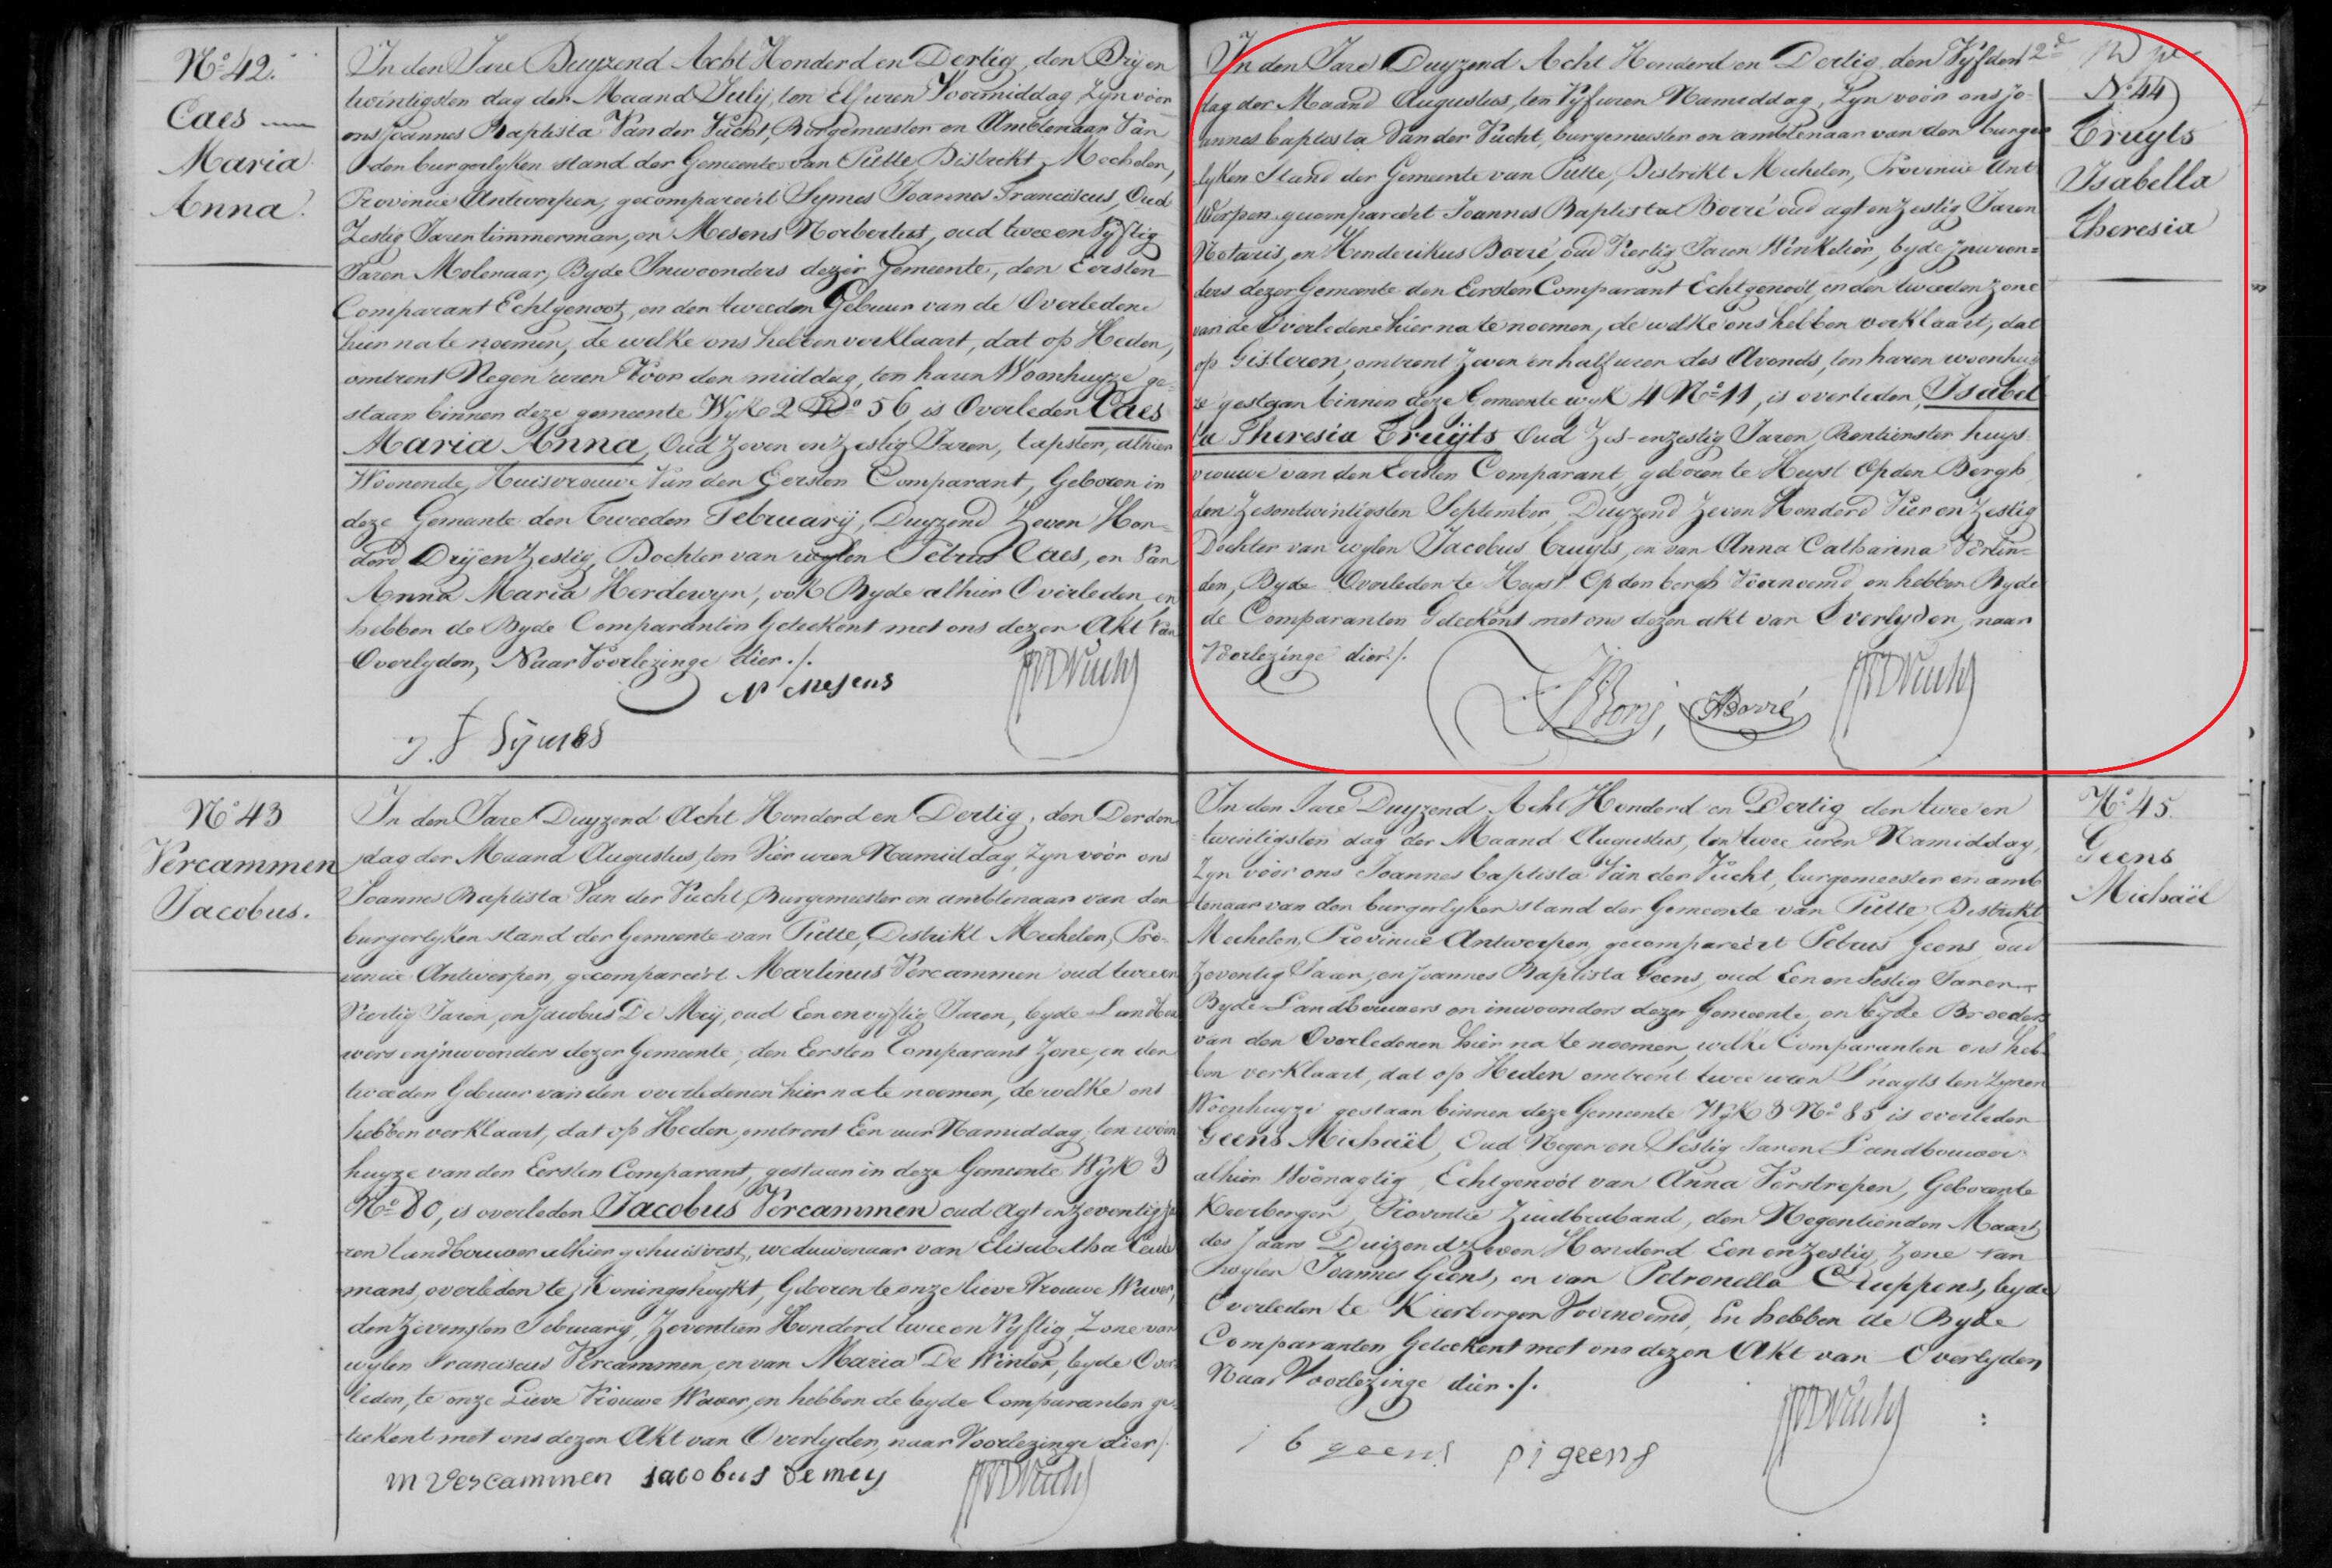 N.o 42.
Caes
Maria
Anna.
In den Jare Duyzend Acht Honderd en Dertig, den Dryen
twintigsten dag der Maand July, ten Elf uren Voormiddag, Zyn voor
ons Joannes Baptista Van der Vucht, Borgemeester en Ambtenaar Van
den burgerlyken stand der Gemeente van Putte Distrikt Mechelen,
Provincie Antwerpen, gecompareërt Symes Joannes Franciscus, Oud
Zestig Jaren timmerman, en Mesens Norbertus, oud twee en Vyftig
Jaren Molenaar, Byde Inwoonders dezer Gemeente, den Eersten
Comparant Echtgenoot, en den tweeden Gebuur van de Overledene
hier na te noemen, de welke ons hebben verklaart, dat op Heden,
omtrent Negen uren Voor den middag, ten haren Woonhuyze ge=
staan binnen deze gemeente Wyk 2 N.o 56 is Overleden Caes
Maria Anna, Oud Zeven en Zestig Jaren, tapster, alhier
Woonende, Huisvrouwe Van den Eersten Comparant, Geboren in
deze Gemeente den Tweeden February, Duyzend Zeven Hon=
derd Dryen Zestig, Dochter van wylen Petrus Caes, en Van
Anna Maria Herdewyn, ook Byde alhier Overleden, en
hebben de Byde Comparanten Geteekent met ons dezen Akt Van
Overlyden, Naar Voorlezinge dier ./.
N Mesens
J. F Symes
N.o 43
Vercammen
Jacobus.
In den Jare Duyzend Acht Honderd en Dertig, den Derden
dag der Maand Augustus, ten Vier uren Namiddag, Zyn voor ons
Joannes Baptista Van der Vucht, Burgemeester en ambtenaar van den
burgerlyken stand der Gemeente van Putte, Distrikt Mechelen, Pro=
vincie Antwerpen, gecompareërt Martinus Vercammen oud twee en
Veertig Jaren, en Jacobus De Meÿ, oud Een en vyftig Jaren, beyde Landbou
wers en jnwoonders dezer Gemeente, den Eersten Comparant Zone, en den
tweeden Gebuur van den overledenen hier na te noemen, de welke ons
hebben verklaart, dat op Heden, omtrent Een uur Namiddag, ten woon
huyze van den Eersten Comparant, gestaan in deze Gemeente Wyk 3
N.o 80, is overleden Jacobus Vercammen oud agt en zeventig ja
ren landbouwer alhier gehuisvest, weduwenaar van Elisabetha Ceule
mans, overleden te Koningshoykt, Geboren te onze lieve Vrouwe Waver,
den Zevensten February, Zeventien Honderd twee en Vyftig, Zone van
wylen Franciscus Vercammen, en van Maria De Winter, beyde Over=
leden, te onze Lieve Vrouwe Waver, en hebben de beyde Comparanten ge=
teekent met ons dezen Akt van Overlyden, naar Voorlezinge dier /.
m vercammen jacobus de mey
In den Jare Duyzend Acht Honderd en Dertig, den Vyfden
dag der Maand Augustus, ten Vyf uren Namiddag, Zyn voor ons Jo=
annes baptista Van der Vucht, burgemeester en ambtenaar van den burger
lyken Stand der Gemeente van Putte, Distrikt Mechelen, Provincie Ant
Werpen gecompareërt Joannes Baptista Borré oud agt en Zestig Jaren
Notaris, en Henderikus Borré, oud Veertig Jaren Winkelier, byde Jnwoon=
ders dezer Gemeente den Eersten Comparant Echtgenoot, en den tweeden Zone
van de Overledene hier na te noemen, de welke ons hebben verklaart, dat
op Gisteren, omtrent Zeven en half uren des Avonds, ten haren woonhuy
ze gestaan binnen deze Gemeente wyk 4 N.o 11, is overleden, Isabel
la Theresia Truÿts Oud Zes-en zestig Jaren, Rentierster huys
vrouwe van den Eersten Comparant, geboren te Heyst Op den Bergh
den Zesentwintigsten September Duyzend Zeven Honderd Vier en Zestig
Dochter van wylen Jacobus truyts, en van Anna Catharina Verlin=
den, Byde Overleden te Heyst Op den bergh Voornoemd en hebben Byde
de Comparanten Geteekent met ons dezen akt van Overlyden, naar
Voorlezinge dier ./.
HBorré
N.o 44
Truyts
Isabella
Theresia
In den Jare Duyzend Acht Honderd en Dertig den twee en
twintigsten dag der Maand Augustus, ten twee uren Namiddag,
Zyn voor ons Joannes baptista Van der Vucht, burgemeester en amb
tenaar van den burgerlyken stand der Gemeente van Putte Distrikt
Mechelen, Provincie Antwerpen, gecompareërt Petrus Geens, oud
Zeventig Jaren, en Joannes Baptista Geens, oud Een en Sestig Jaren
Byde Landbouwers en inwoonders dezer Gemeente, en beyde Broeders
van den Overledenen hier na te noemen, welke Comparanten ons heb=
ben verklaart, dat op Heden omtrent twee uren S'nagts ten Zynen
Woonhuyze gestaan binnen deze Gemeente Wyk 3 N.o 85 is overleden
Geens Michaël, Oud Negen en Sestig Jaren Landbouwer
alhier Woonagtig, Echtgenoot van Anna Verstrepen, Geboren te
Keerbergen, Provintie Zuidbraband, den Negentienden Maart
des Jaars Duizend Zeven Honderd Een en Zestig, Zone van
wylen Joannes Geens, en van Petronella Cruppens, beyde
Overleden te Kierbergen Voornoemd, En hebben de Byde
Comparanten Geteekent met ons dezen Akt van Overlyden
Naar Voorlezinge dier ./.
j b geens p j geens
N.o 45.
Geens
Michaël